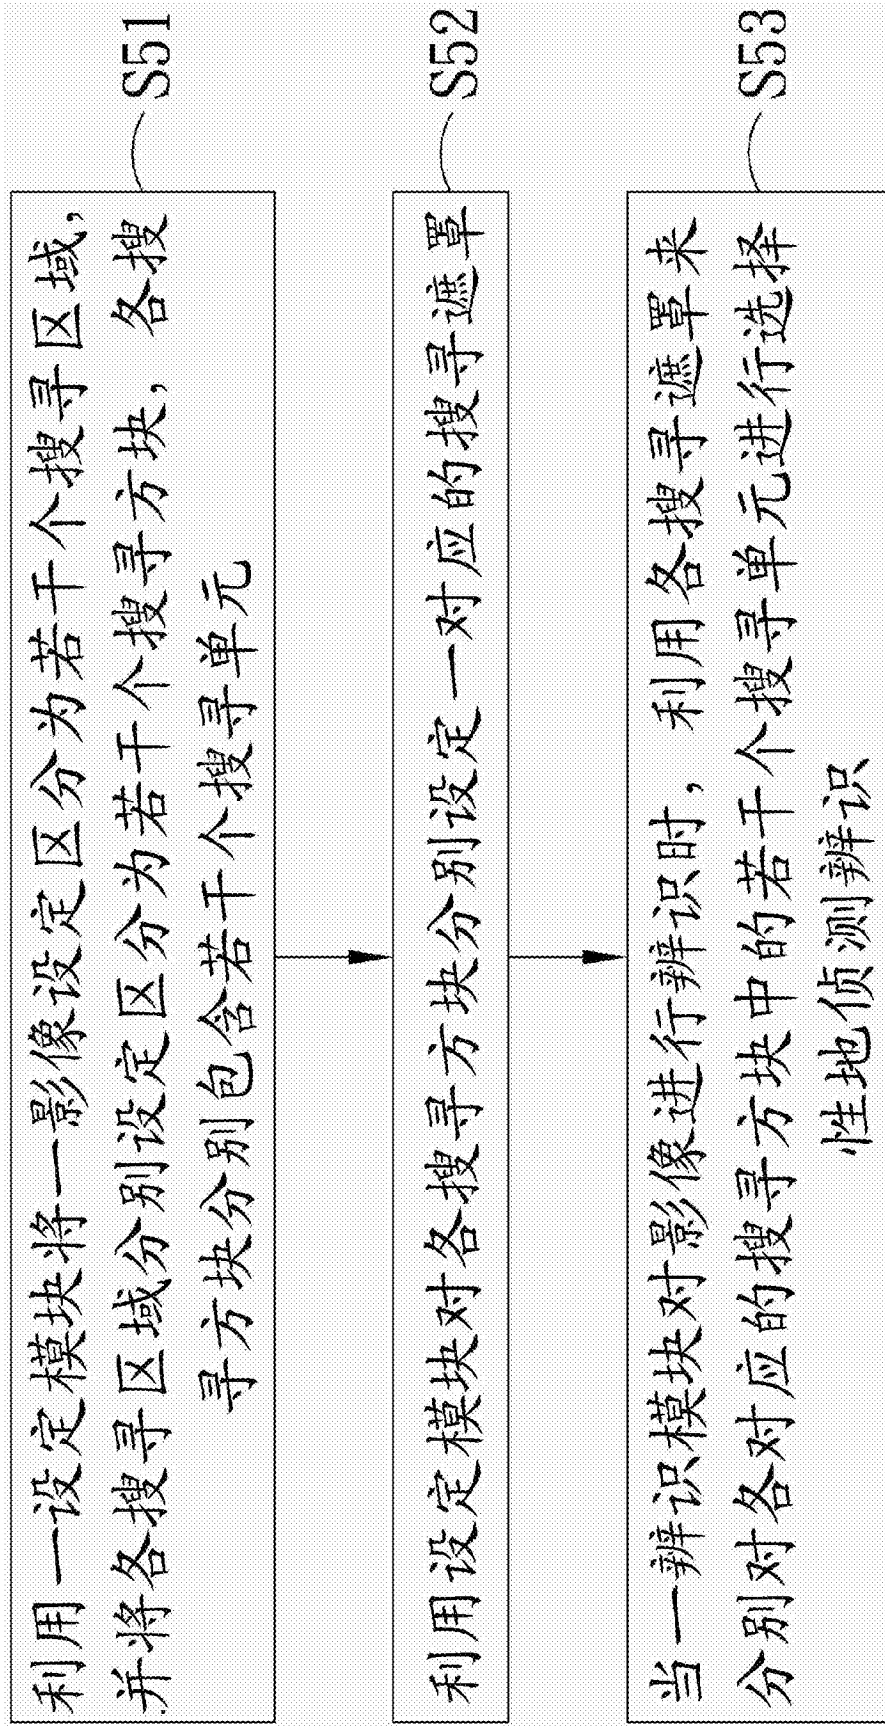 利用一设定模块将一影像设定区分为若干个搜寻区域，
并将各搜寻区域分别设定区分为若干个搜寻方块，各搜
寻方块分别包含若干个搜寻单元
S51
利用设定模块对各搜寻方块分别设定一对应的搜寻遮罩
S52
当一辨识模块对影像进行辨识时，利用各搜寻遮罩来
分别对各对应的搜寻方块中的若干个搜寻单元进行选择
性地侦测辨识
S53